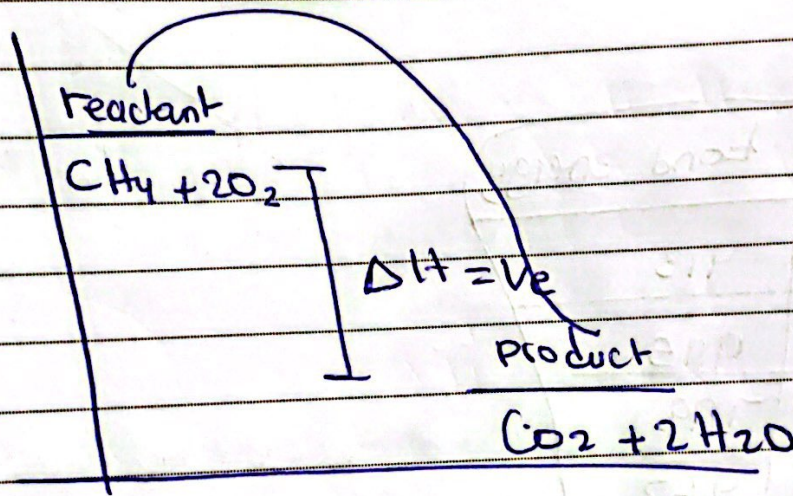 reactant
CH4 + 2O2
ΔH = Ve
product
CO2 + 2H2O